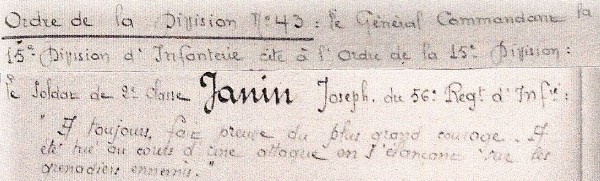 Ordre de la Division N° 43 : le Général Commandant la
15e Division d'Infanterie cite à l'Ordre de la 15e Division :
le Soldat de 2e classe Janin Joseph. du 56e Regt d'Infie :
"A toujours fait preuve du plus grand courage. A
été tué au cours d'une attaque en s'élançant sur les
grenadiers ennemis."